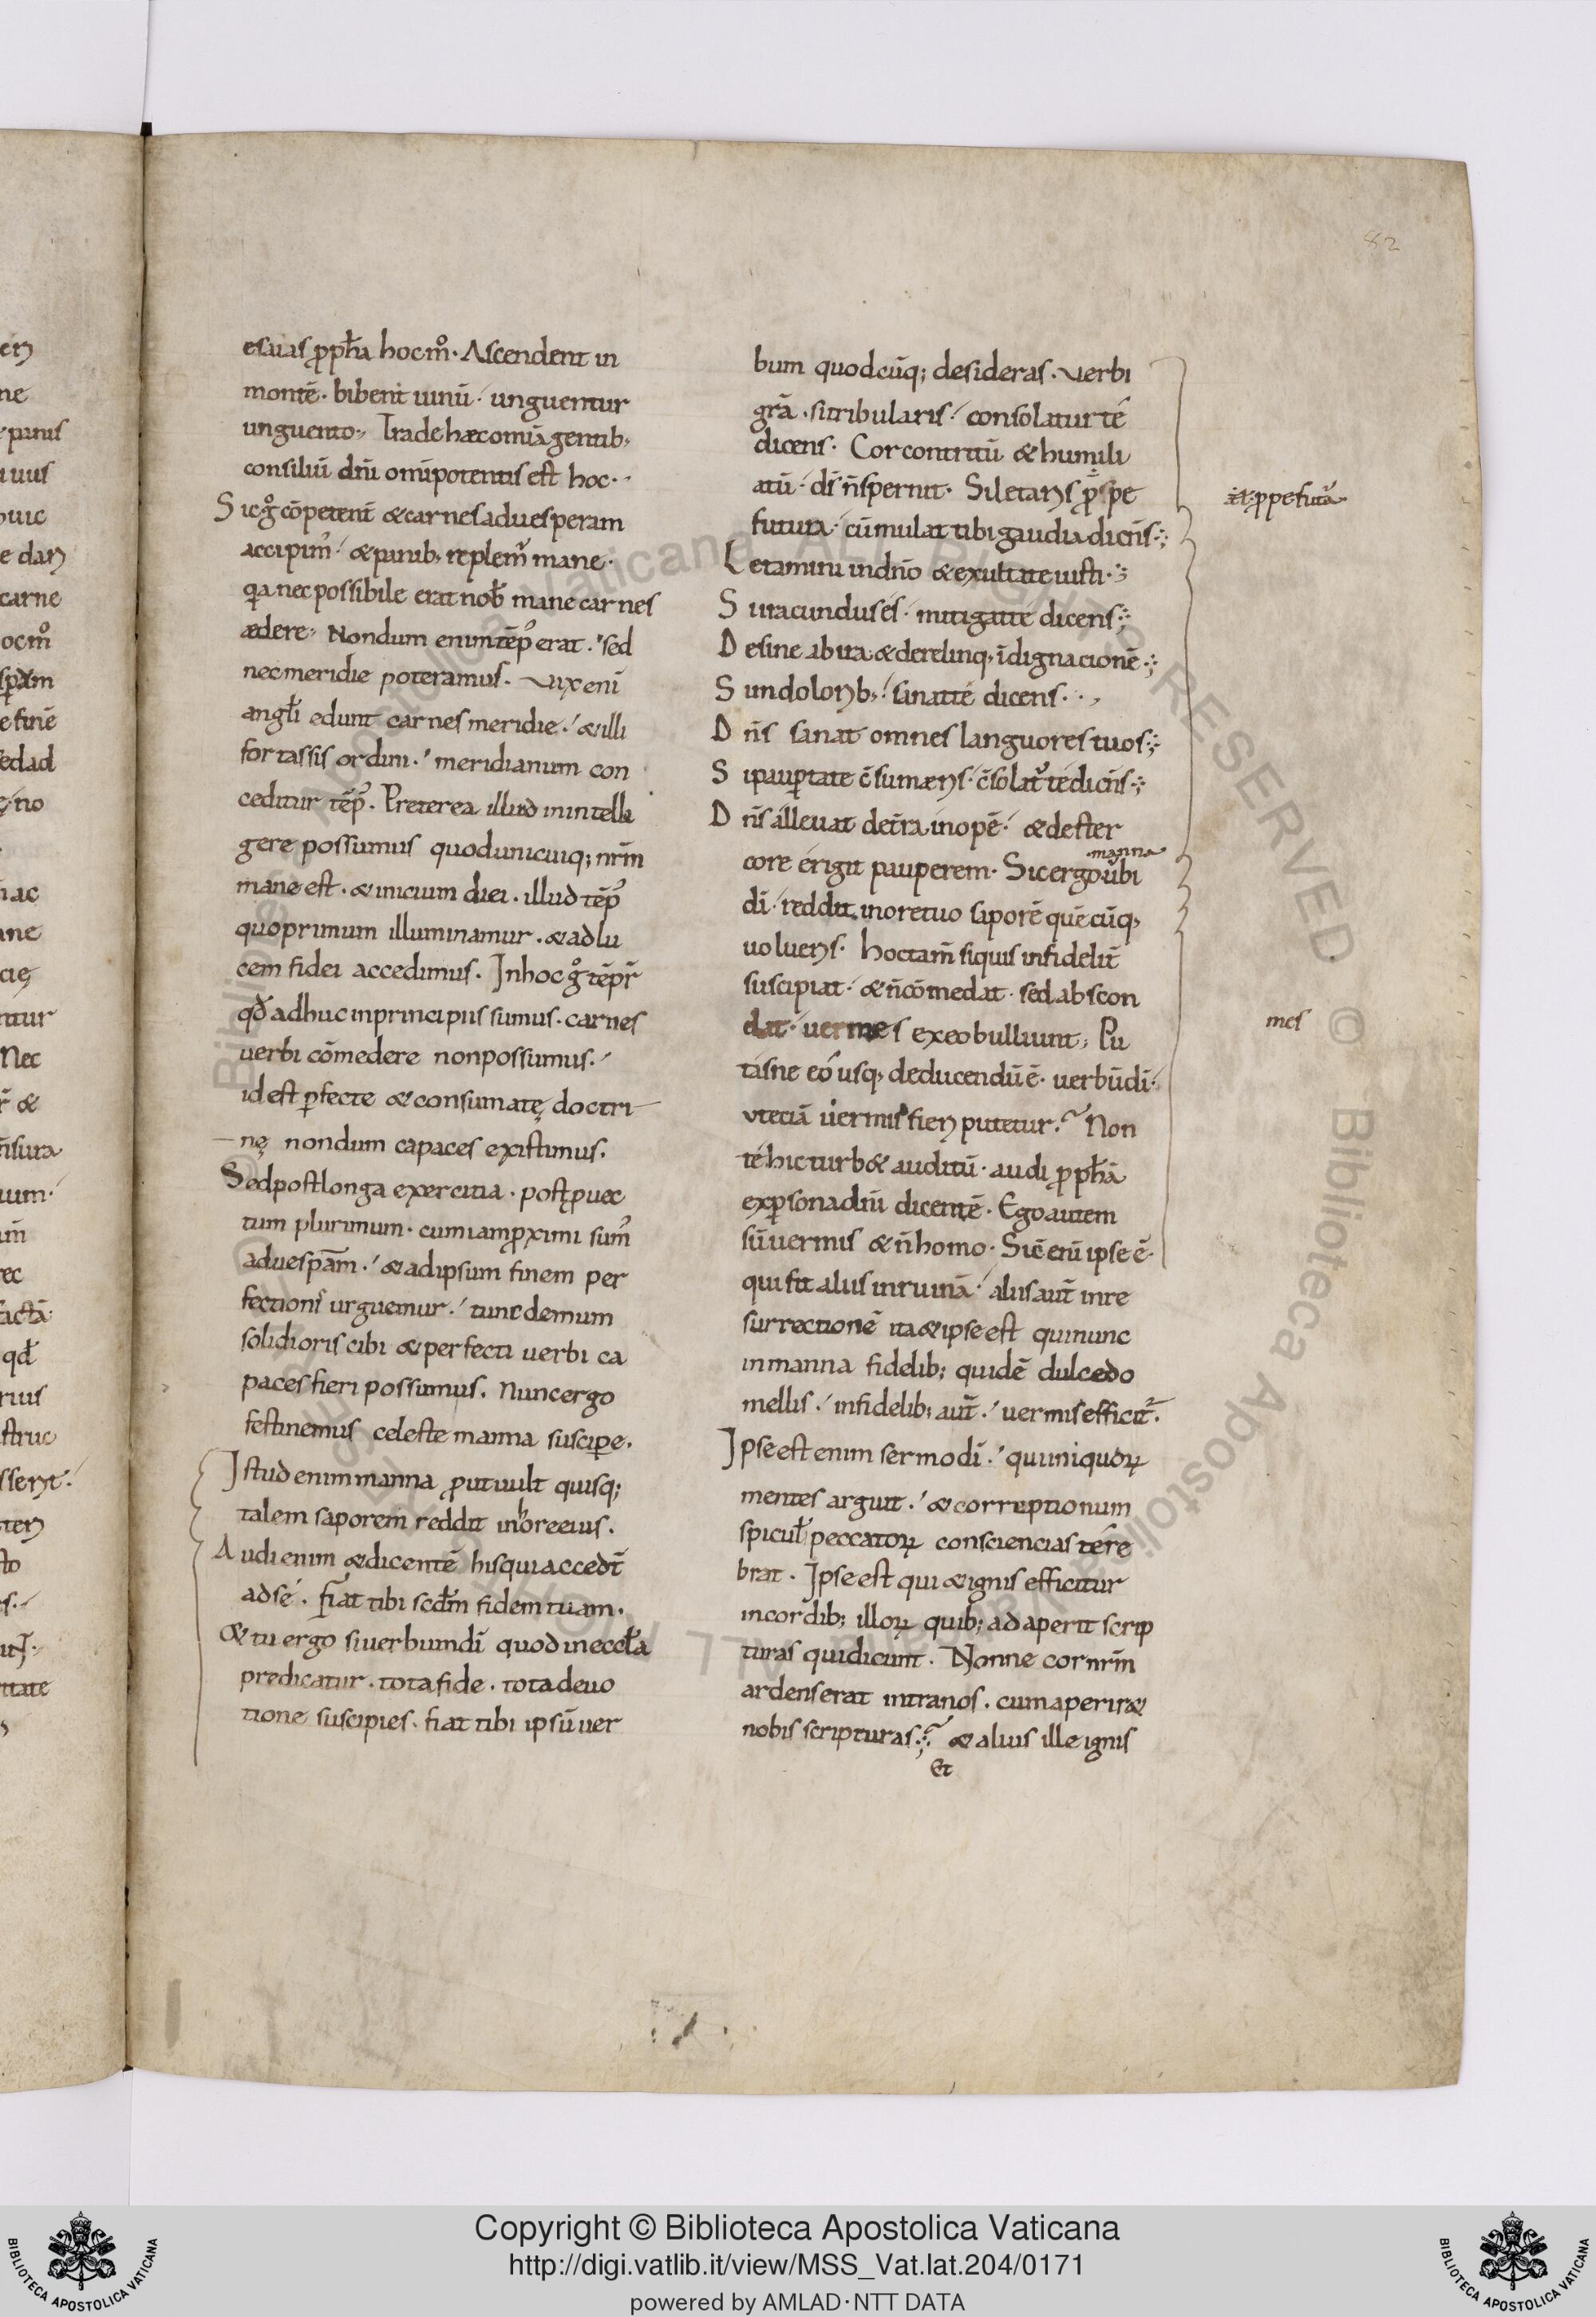 esaias ꝓph̄a hoc mͦ. Ascendent in
montē. bibent uinū. unguentur
unguento. Trade hæc om̄ia gentib;
consiliū dn̄i omīpotentis est hoc.
Sic gͦ cōpetent̄ & carnes ad uesperam
accipim᾽ & panib; replem᾽ mane.
qa nec possibile erat nob̄ mane carnes
ædere. Nondum enim tēp᾽ erat. sed
nec meridie poteramus. Vix eni
angl̄i edunt carnes meridie. & illi
fortassis ordini. meridianum con
ceditur tēp᾽. Preterea illud inintelli
gere possumus quod unicuiq; nr̄m
mane est. & inicium diei. illud tēp᾽
quo primum illuminamur. & ad lu
cem fidei accedimus. In hoc gͦ tēpr̄
qd̄ adhuc in principiis sumus. carnes
uerbi cōmedere non possumus.
id est ꝑfecte & consumatę doctri
nę nondum capaces existimus.
Sed post longa exercitia. post ꝓuec
tum plurimum. cum iam ꝓximi sum᾽
ad uesꝑam. & ad ipsum finem per
fectionis urguemur. tunc demum
solidioris cibi & perfecti uerbi ca
paces fieri possumus. Nunc ergo
festinemus celeste manna susciꝑe.
Istud enim manna ꝓut uult quisq;
talem saporem reddit in ore eius.
Audi enim & dicentē his qui accedt̄
ad sé. Fiat tibi scd̄m fidem tuam.
& tu ergo si uerbum dī quod in eccl̄a
predicatur. tota fide. tota deuo
tione suscipies. fiat tibi ipsū uer
bum quodcūq; desideras. Verbi
grā. si tribularis. consolatur té
dicens. Cor contritū & humili
atū. dī n̄ spernit. Si letaris ꝓ spe
futura. cūmulat tibi gaudia dicn̄s.
Letamini in dn̄o & exultate iusti.
Si iracundus és. mitigat té dicens.
Desine ab ira & derelinq; īdignacionē.
Si in dolorib; sanat té dicens.
Dn̄s sanat omnes languores tuos.
Si pauꝑtate c̄sumæris. c̄solat᾽ té dicn̄s.
Dn̄s álleuat de tr̄a inopē. & de ster
manna
core érigit pauperem. Sic ergo ubi
dī. reddit in ore tuo saporē quēcūq;
uolueris. hoc tam̄ si quis infideliū
suscipiat. & n̄ cōmedat. sed abscon
dat. uermes ex eo bulliunt. Pu
tasne eó usq; deducendū ē. uerbū dī.
vt eciā uermis fieri putetur. Non
té hic turb& auditū. audi ꝓph̄ā
ex ꝑsona dn̄i dicentē. Ego autem
sū uermis & n̄ homo. Sic̄ enī ipse ē.
qui fit aliis in ruinā. aliis aut̄ in re
surrectionē ita & ipse est qui nunc
in manna fidelib; quidē dulcedo
mellis. infidelib; aut̄. uermis efficit᾽.
Ipse est enim sermo dī. qui iniquoꝝ
mentes arguit. & correptionum
spicul̄ peccatoꝝ consciencias tére
brat. Ipse est qui & ignis efficitur
in cordib; illoꝝ quib; adaperit scrip
turas qui dicunt. Nonne cor nr̄m
ardens erat intra nos. cum aperir&
nobis scripturas. & alius ille ignis
Et
82
mes